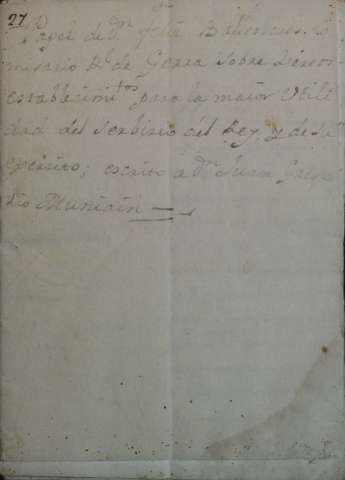 27
Papel de Dn. Felix Ballesteros, Co
misario R. de Gerra sobre
establecimitos. para la maior Utili
dad del serbisio del Rey, y de su
egersito; escrito a Dn. Juan Grego
rio Muniain